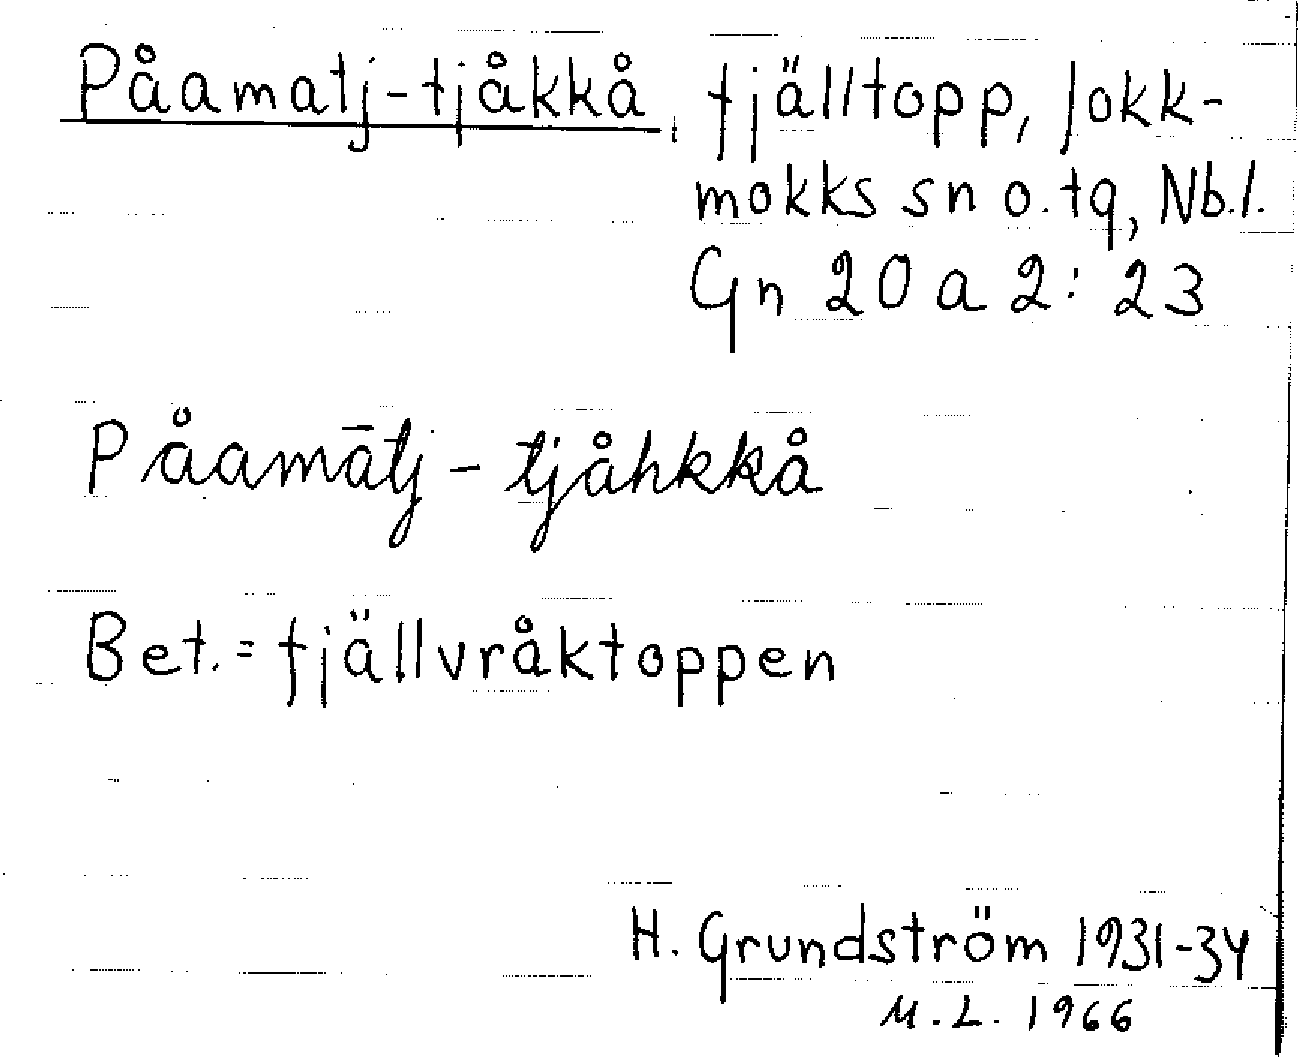 Påamatj-tjåkkå, fjälltopp, Jokk-
mokks sn o. tg, Nb. l.
Gn 20 a 2: 23
Påamātj-tjåhkkå
Bet. = fjällvråktoppen
H. Grundström 1931-34
M. L. 1966